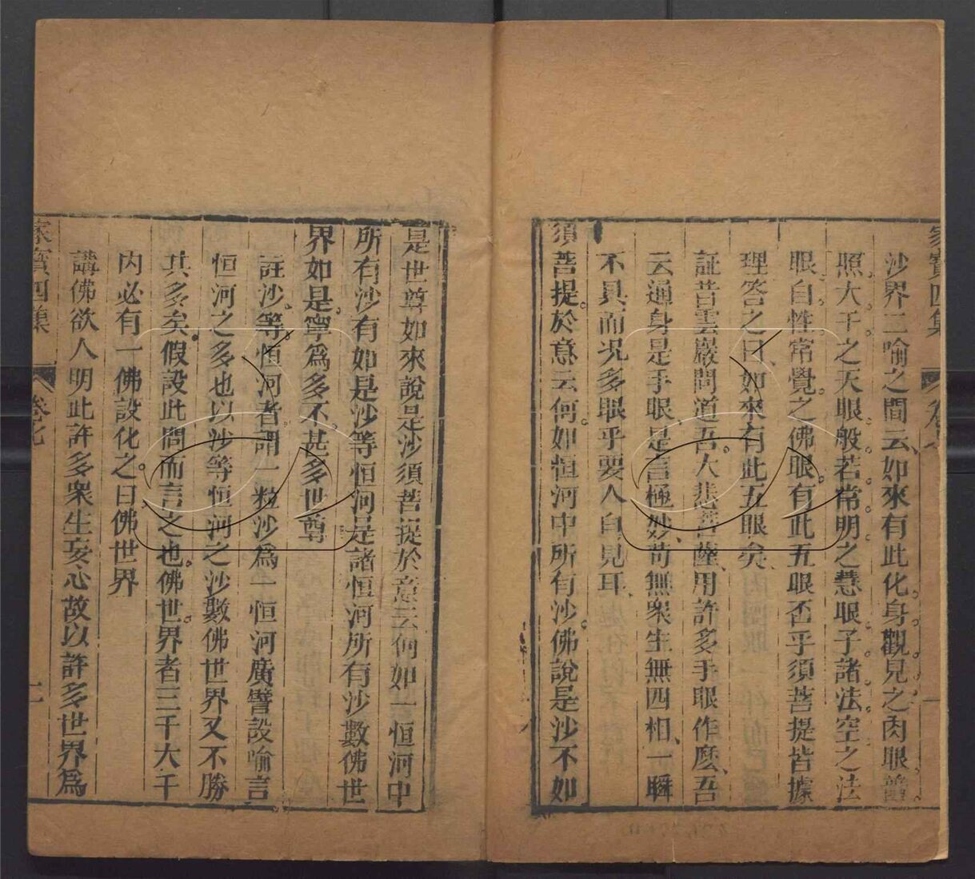 家寶四集
沙界二喻之間云如來有此化身觀見之肉眼普
照大千之天眼般若常明之慧眼了諸法空之法
眼自性常覺之佛眼有此五眼否乎須菩提皆據
理答之曰如來有此五眼矣
証昔雲巖問道吾大悲菩薩用許多手眼作麽吾
云通身是手眼是言極妙苟無衆生無四相一瞬
不具而况多眼乎要人自見耳
須菩提於意云何如恒河中所有沙佛說是沙不如
是世尊如來說是沙須菩提於意云何如一恒河中
所有沙有如是沙等恒河是諸恒河所有沙數佛世
界如是寧爲多不甚多世尊
註沙等恒河者謂一粒沙爲一恒河廣譬設喻言
恒河之多也以沙等恒河之沙數佛世界又不勝
其多矣假設此問而言之也佛世界者三千大千
内必有一佛設化之曰佛世界
講佛欲人明此許多衆生妄心故以許多世界爲
家寶四集
卷七